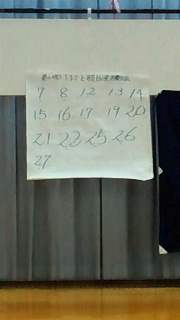 7 8 12 13 14
15 16 17 19 20
21 22 25 26
27